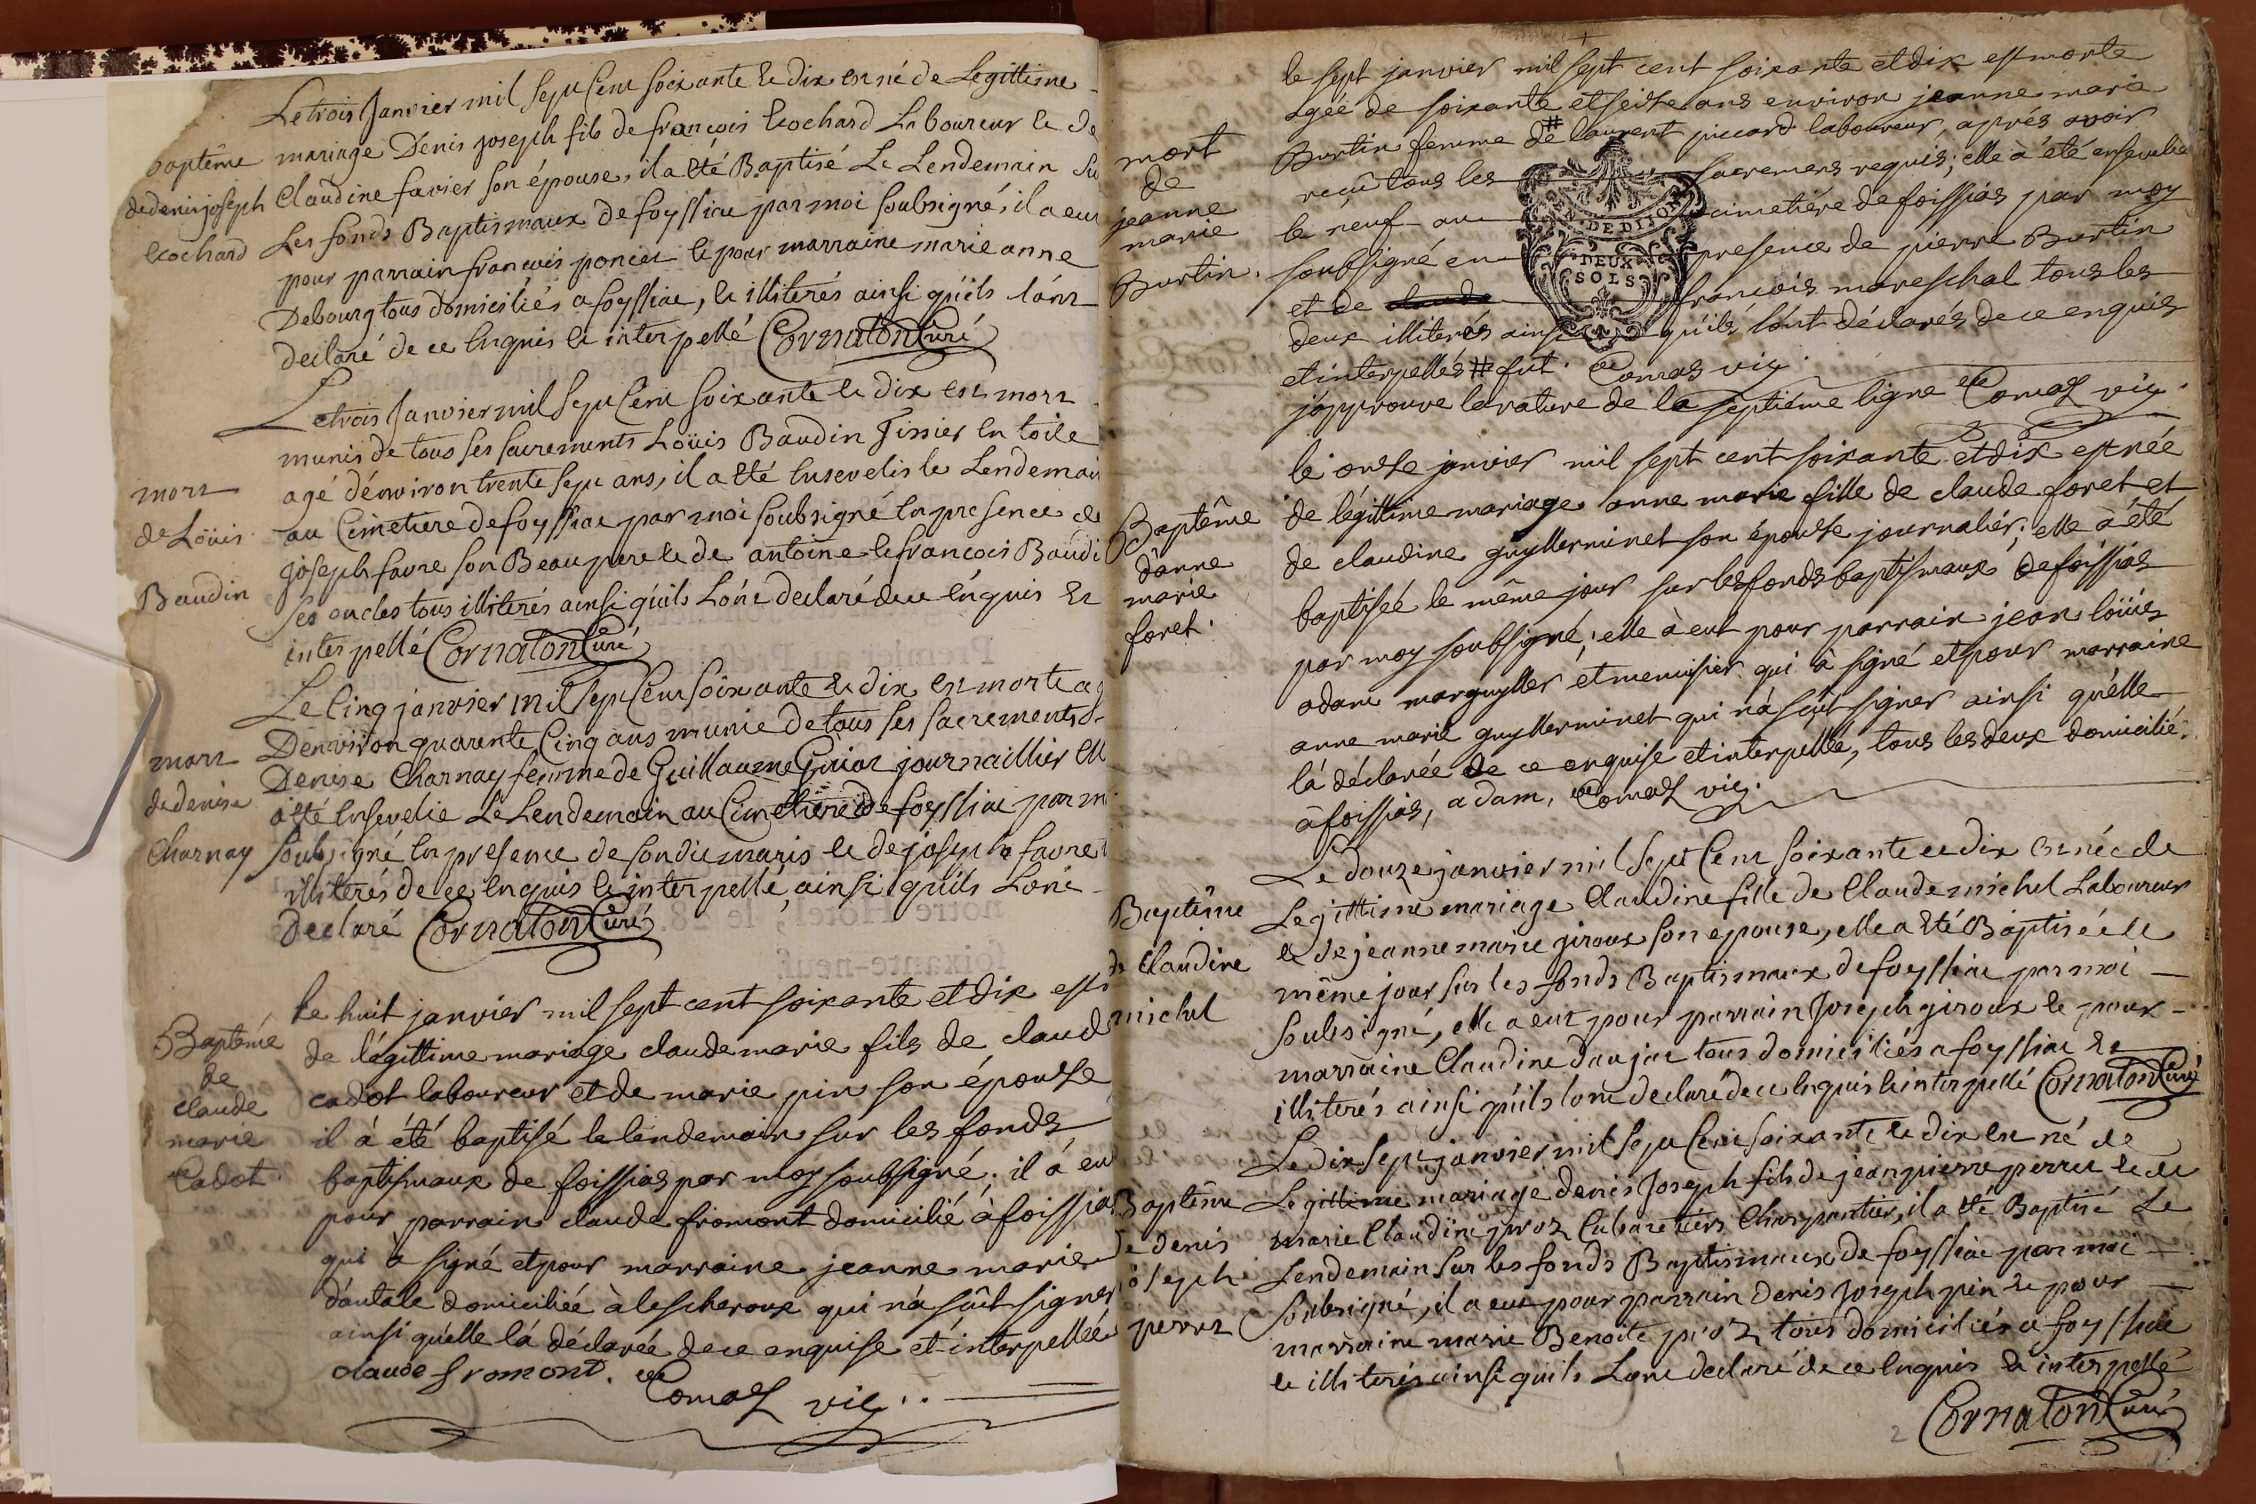 Le trois Janvier mil sept Cent soixante et dix est né de Legittime
mariage Dénis joseph fils de françois Ecochard Laboureur et de
Claudine favier son épouse, il a été Baptisé Le Lendemain su
Les fonds Baptismaux de foyssiac par moi soubsigné, il a eut
pour parrain françois poncet et pour marraine marie anne
Debourg tous domiciliés a foyssiac, et illiterés ainsi qu'ils l'ont
declaré de ce Enquis et interpellé Cornaton Curé
baptême
de denis joseph
Ecochard
Le trois Janvier mil sept Cent soixante et dix est mort
munis de tous ses sacrements Loüis Baudin Tissier En toile
agé d'environ trente sept ans, il a été Ensevelis le Lendemain
au Cimetiere de foyssiac par moi soubsigné En presence de
joseph favre son Beau pere et de antoine et francois Baudi
ses oncles tous illiterés ainsi qu'ils L'ont declaré de ce Enquis Et
interpellé Cornaton Curé
mort
de Loüis
Baudin
Le Cinq janvier mil sept Cent soixante et dix est morte ag
D'environ quarante Cinq ans munie de tous ses sacrements
Denise Charnay femme de Guillaume Guion journaillier Ell
a été Ensevelie Le Lendemain au Cimetiere de foyssiac par m
soubsigné En presence de son dit maris et de joseph favre
illiterés de ce Enquis et interpellé, ainsi qu'ils L'ont
declaré Cornaton Curé
mort
de denise
Charnay
le huit janvier mil sept cent soixante et dix est
de légittime mariage claude marie fils de claude
cadot laboureur et de marie pin son épouse
il à été baptisé le lendemain sur les fonds
baptismaux de foissias par moy soubsigné; il à eu
pour parrain claude fromont domicilié à foissias
qui à signé et pour marraine jeanne marie
dantale domiciliée à lescheroux qui n'a sçût signer
ainsi qu'elle l'à déclarée de ce enquise et interpellée
claude fromont. Comas vic.
Baptéme
de
claude
marie
Cadot
le sept janvier mil sept cent soixante et dix est morte
agée de soixante et seize ans environ jeanne marie
Burtin femme de # laurent piccard laboureur, aprés avoir
reçû tous les sacremens requis; elle à été ensevelie
le neuf au cimetiére de foissias par moy
soubsigné en presence de pierre Burtin
et de françois mareschal tous les
deux illiterés ainsi qu'ils l'ont déclarés de ce enquis
et interpellés # fut. Comas vic
j'approuve la rature de la septiéme ligne Comas vic.
mort
de
jeanne
marie
Burtin.
GEN. DE DIJON
DEUX
SOLS
le onze janvier mil sept cent soixante et dix est née
de légittime mariage anne marie fille de claude foret et
de claudine guyllerminet son épouse journaliér; elle à été
baptisée le même jour sur les fonds baptismaux de foissias
par moy soubsigné; elle à eut pour parrain jean loüis
adam marguyller et menuisier qui à signé et pour marraine
anne marie guyllerminet qui n'à sçût signer ainsi qu'elle
l'à déclarée de ce enquise et interpellée, tous les deux domiciliés
à foissias, adam, Comas vic.
Baptême
d'anne
marie
foret.
Le douze janvier mil sept Cent soixante et dix est née de
Legittime mariage Claudine fille de Claude michel Laboureur
et de jeanne marie giroux son epouse, elle a été Baptisée le
même jour sur les fonds Baptismaux de foyssiac par moi
soubsigné, elle a eut pour parrain Joseph giroux et pour
marraine Claudine daujac tous domiciliés a foyssiac et
illiterés ainsi qu'ils l'ont declaré de ce Enquis et interpellé Cornaton Curé
Baptême
de Claudine
michel
Le dix sept janvier mil sept Cent soixante et dix est né de
Legittime mariage denis Joseph fils de jean pierre perret et de
marie Claudine proz Cabaretiers Charpantier, il a été Baptisé Le
Lendemain sur les fonds Baptismaux de foyssiac par moi
soubsigné, il a eut pour parrain Denis Joseph pin et pour
marraine marie Benoite proz tous domiciliés a foyssiac
et illiterés ainsi qu'ils L'ont declaré de ce Enquis et interpellé
Cornaton Curé
Baptême
de denis
joseph
perret
2